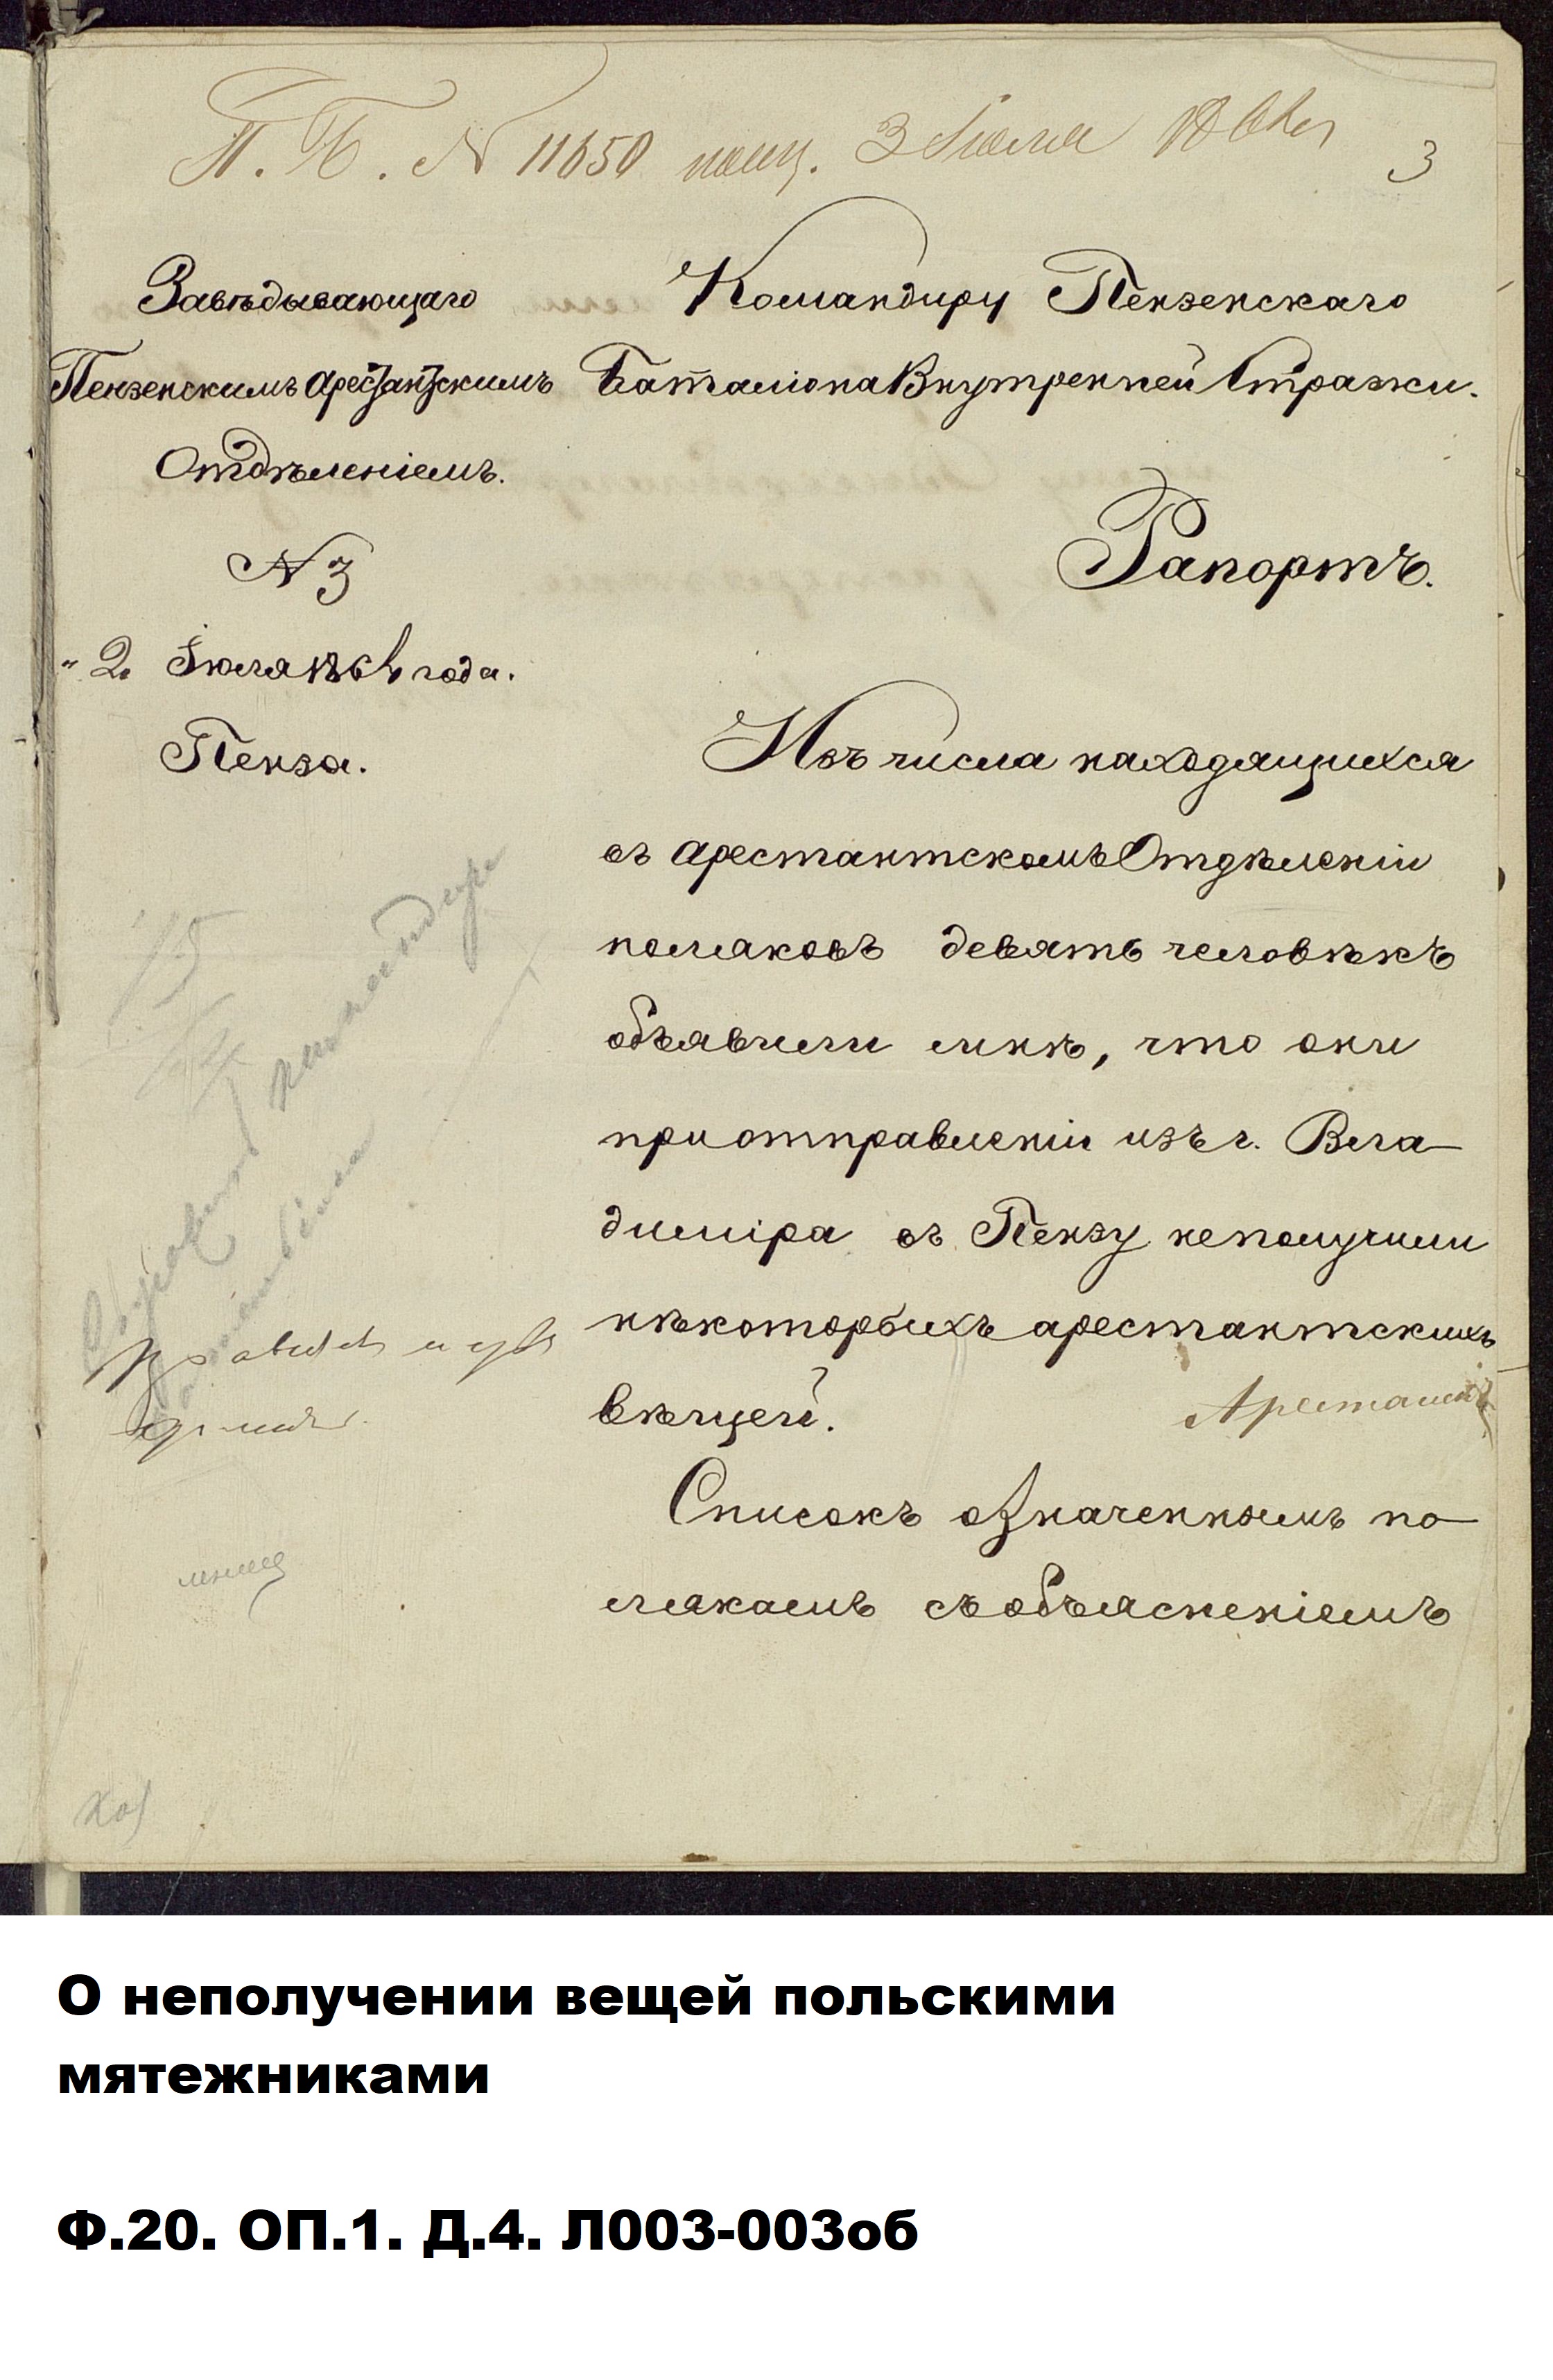 П. Б. N 11650 пол. 3 Июля 1864
3
Завѣдывающаго
Пензенскимъ арестантскимъ
Отдѣленіемъ.
N 3
" 2. Іюля 1864 года.
Пенза.
Командиру Пензенскаго
Баталіона Внутренней Стражи.
Рапортъ.
Изъ числа находящихся
въ арестантскомъ Отдѣленіи
поляковъ девять человѣкъ
объявили мнѣ, что они
при отправленіи изъ г. Вла-
диміра въ Пензу неполучили
нѣкоторыхъ арестантскихъ
вѣщей.
Списокъ означеннымъ по-
лякамъ съ объясненіемъ
О неполучении вещей польскими
мятежниками
Ф.20. ОП.1. Д.4. Л003-003об